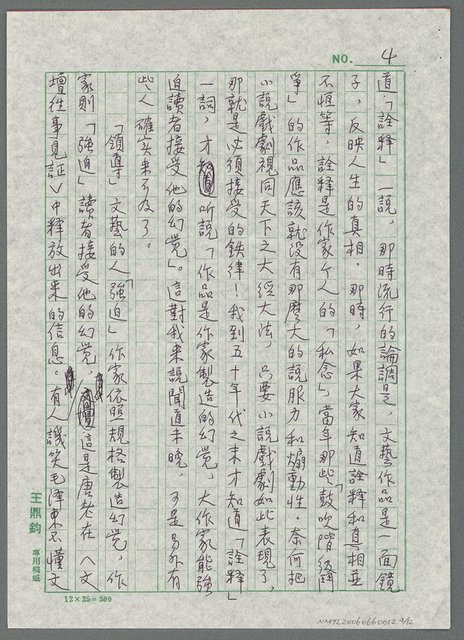 NO. 4
道「詮释」一说，那時流行的論調是，文藝作品是一面鏡
子，反映人生的真相．那時，如果大家知道詮释和真相並
不恒等，詮释是作家个人的「私念」，當年那些「鼓吹階級鬥
爭」的作品應該就没有那麽大的説服力和煽動性．奈何把
小說戲劇視同天下之大經大法，只要小說戲劇如此表現了，
那就是必須接受的鉄律！我到五十年代之末才知道「詮释」
一詞，才听說「作品是作家製造的幻觉，大作家能強
迫讀者接受他的幻觉」。這對我来說聞道未晚，可是另外有
些人確实来不及了。
「領導」文藝的人「強迫」作家依照規格製造幻觉，作
家則「強迫」讀者接受他的幻觉，這是唐老在〈文
壇往事見証〉中释放出来的信息。有人譏笑毛泽东不懂文
王鼎鈞 專用稿紙
12×25=300
NMTL20060660012 4/12